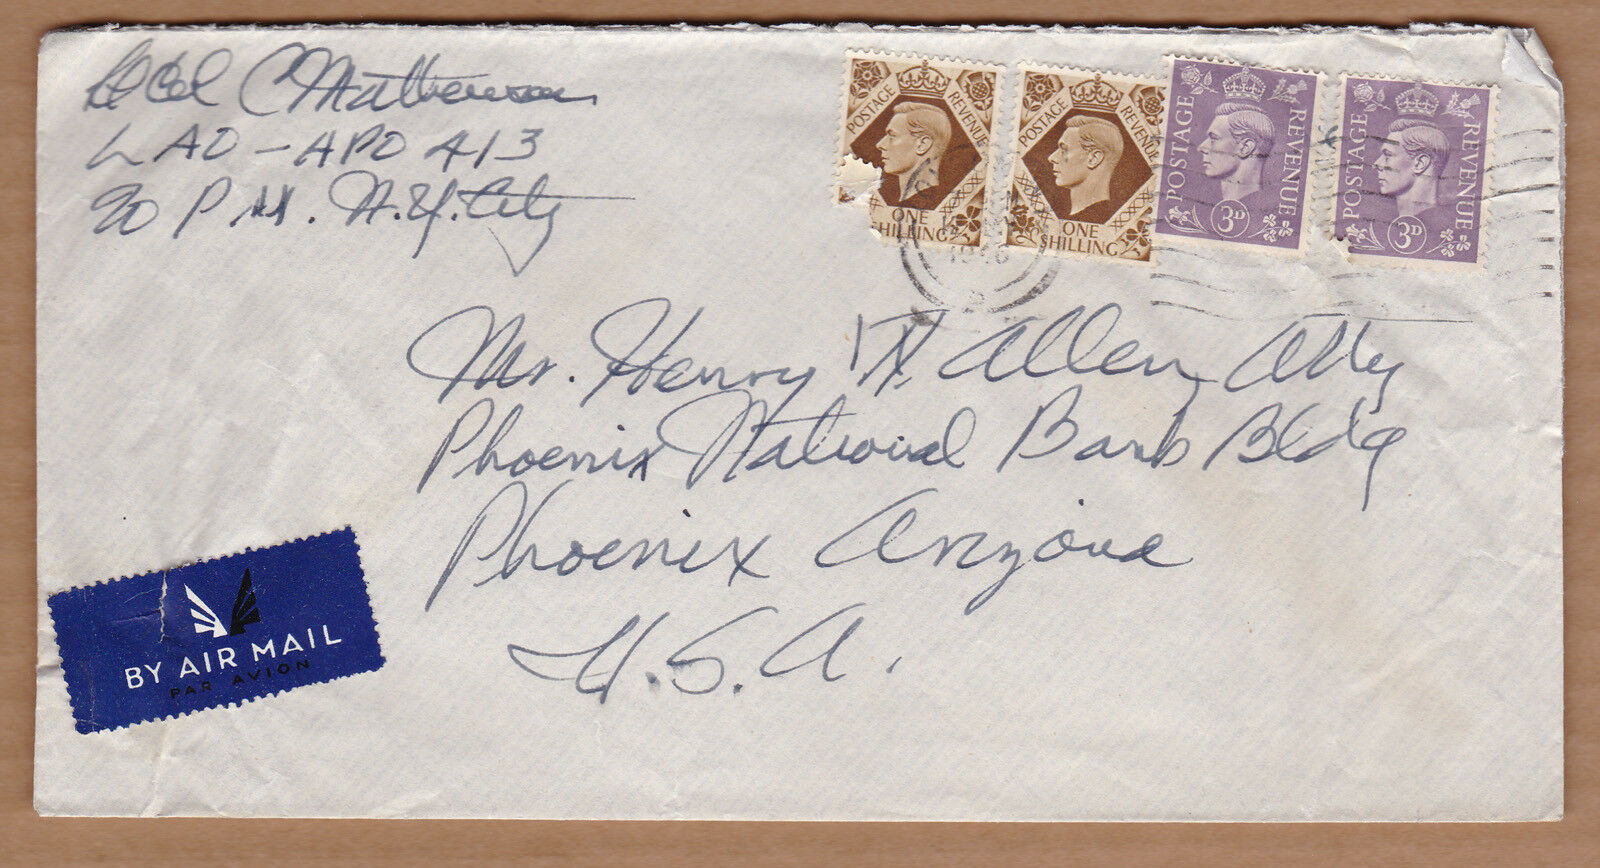 Lt Col C Matheson
LAO - APO 413
% P.M. N.Y. City
POSTAGE REVENUE
ONE SHILLING
POSTAGE REVENUE
ONE SHILLING
POSTAGE REVENUE
3D
POSTAGE REVENUE
3D
1946
Mr. Henry Allen, Atty
Phoenix National Bank Bldg
Phoenix Arizona
U.S.A.
BY AIR MAIL
PAR AVION